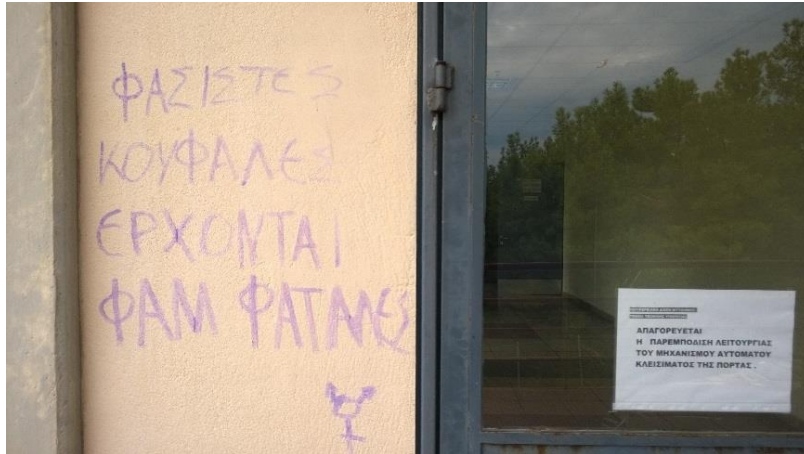 ΦΑΣΙΣΤΕΣ
ΚΟΥΦΑΛΕΣ
ΕΡΧΟΝΤΑΙ
ΦΑΜ ΦΑΤΑΛΕΣ
ΑΠΑΓΟΡΕΥΕΤΑΙ
Η ΠΑΡΕΜΠΟΔΙΣΗ ΛΕΙΤΟΥΡΓΙΑΣ
ΤΟΥ ΜΗΧΑΝΙΣΜΟΥ ΑΥΤΟΜΑΤΟΥ
ΚΛΕΙΣΙΜΑΤΟΣ ΤΗΣ ΠΟΡΤΑΣ .